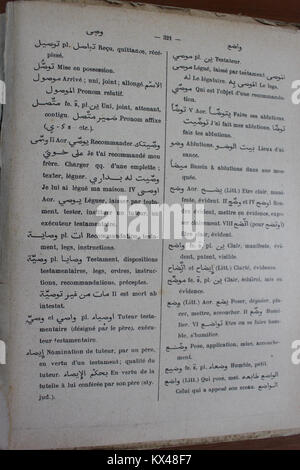 وصى
— 321 —
واضع
توصيل pl. تواصيل Reçu, quittance, récépissé.
توصّل Mise en possession.
موصول Arrivé ; uni, joint ; allongé. الاسم
الموصول Pronom relatif.
متّصل fe. s. pl. ين Uni, joint, attenant,
contigu. ضمير متّصل Pronom affixe
etc.).
وصّى II Aor. Recommander وصّيتك
على خوي Je t'ai recommandé mon
frère. Charger qq. d'une emplette ;
tester, léguer;
Je lui ai légué ma maison. IV اوصى
Aor. يوصي Léguer, laisser par testament,
tester, instituer un tuteur, un
exécuteur testamentaire.
وصاية pl. ات Recommandation, testament,
legs, instructions.
وصيّة pl. وصايا Testament, dispositions
testamentaires, legs, ordres, instructions,
recommandations, préceptes.
مات من غير توصية Il est mort ab
intestat.
وصي pl. اوصياء Tuteur testamentaire
(désigné par le père), exécuteur
testamentaire.
ايصاء Nomination de tuteur, par un père,
en vertu d'un testament; qualité du
tuteur. بحكم الايصاء En vertu de la
tutelle à lui conférée par son père (sty.
jud.).
موصي pl. ين Testateur.
موصى Légué, laissé par testament
له Le légataire. به Le legs.
موصى Qui est l'objet d'une recommandation.
توضّأ V Aor. يتوضّأ Faire ses ablutions.
توضّيت J'ai fait mes ablutions
fais tes ablutions.
وضوء Ablutions. Lieu d'ablutions.
ميضة Bassin à ablutions dans une mosquée.
وضح Aor. يوضح (Litt.) Etre clair, manifeste,
évident. II وضّح et IV اوضح Rendre
évident, mettre en évidence, exposer
clairement. VIII اتّضح (pour
اوتضح) Etre clair, évident.
واضح fe. s. pl. ين Clair, manifeste, évident,
patent, visible.
ايضاح et اتّضاح (Litt.) Clarté, évidence.
موضّح fe. s. pl. ين Clair, éclairci, mis en
évidence.
وضع (Litt.) Aor. يضع Poser, déposer, placer,
mettre, accoucher. II وضّع Humilier.
VI تواضع Etre ou se faire humble,
s'humilier.
وضع Pose, application, mise, accouchement.
وضيع fe. s. pl. وضعاء Humble, petit.
واضع (Litt.) Qui pose, met. الواضع خاتمه
Celui qui a apposé son sceau.